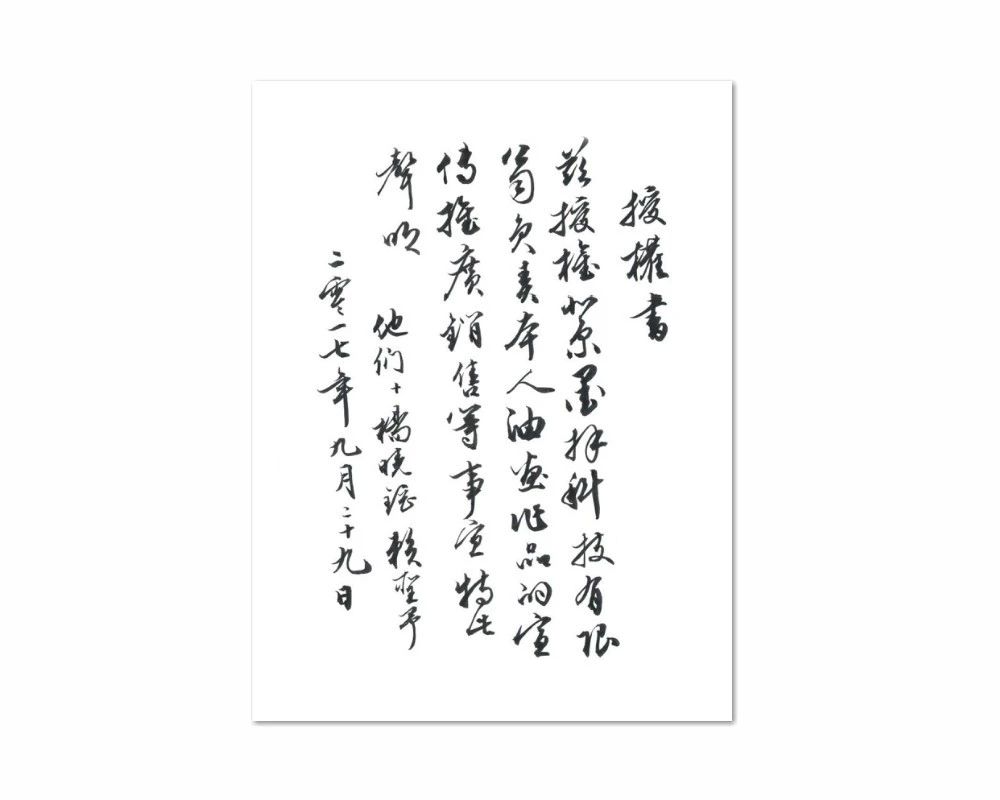 授權書
茲授權北京墨择科技有限
公司負責本人油画作品的宣
傳推廣銷售等事宜特此
聲明
他们+橘曉
二零一七年九月二十九日